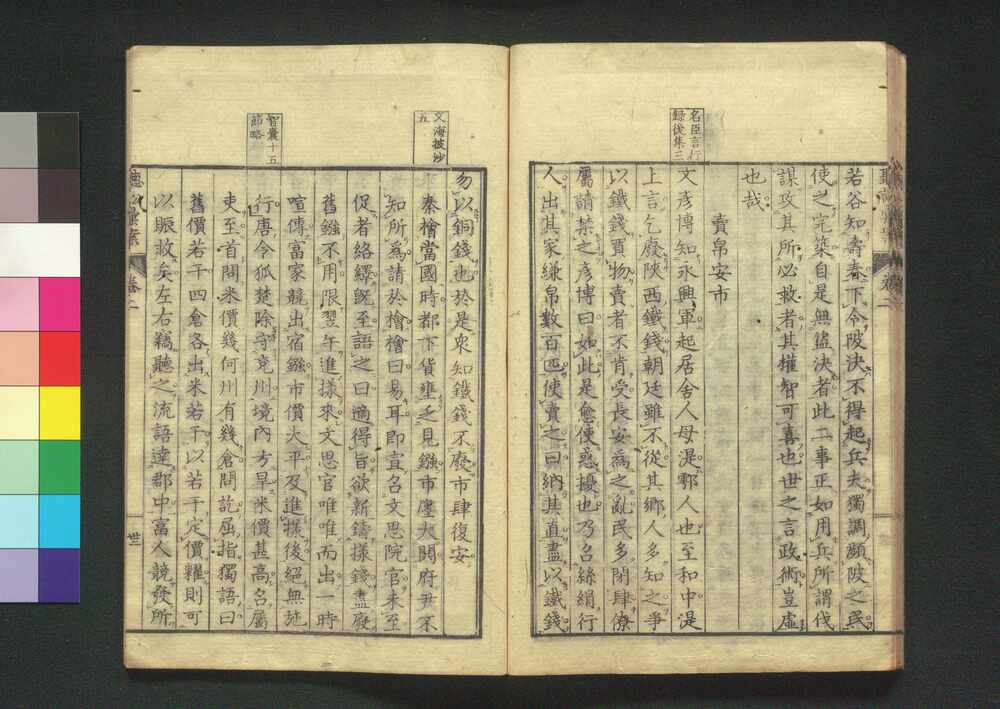 名臣言行
錄後集三
若谷知壽春下令陂決不得起兵夫獨調瀕陂之民
使之完築自是無盜決者此二事正如用兵所謂伐
謀攻其所必救者其權智可喜也世之言政術豈虛
也哉
賣帛安市
文彥博知永興軍起居舍人母湜鄠人也至和中湜
上言乞廢陝西鐵錢朝廷雖不從其鄉人多知之爭
以鐵錢買物賣者不肯受長安為之亂民多閉肆僚
屬請禁之彥博曰如此是愈使惑擾也乃召絲絹行
人出其家縑帛數百匹使賣之曰納其直盡以鐵錢
文海披沙
五
智囊十五
節略
勿以銅錢也於是眾知鐵錢不廢市肆復安
秦檜當國時都下貨壅乏見鏹市廛大閧府尹不
知所為請於檜檜曰易耳即宣召文思院官未至
促者絡繹既至語之曰適得旨欲新鑄樣錢盡廢
舊鏹不用限翌午進樣來文思官唯唯而出一時
喧傳富家競出宿鏹市價大平及進樣後絕無施
行唐令狐楚除守兗州境內方旱米價甚高召屬
吏至首問米價幾何州有幾倉問訖屈指獨語曰
舊價若干四倉各出米若干以若干定價糶則可
以賑救矣左右竊聽之流語達郡中富人競發所
卷二
世三